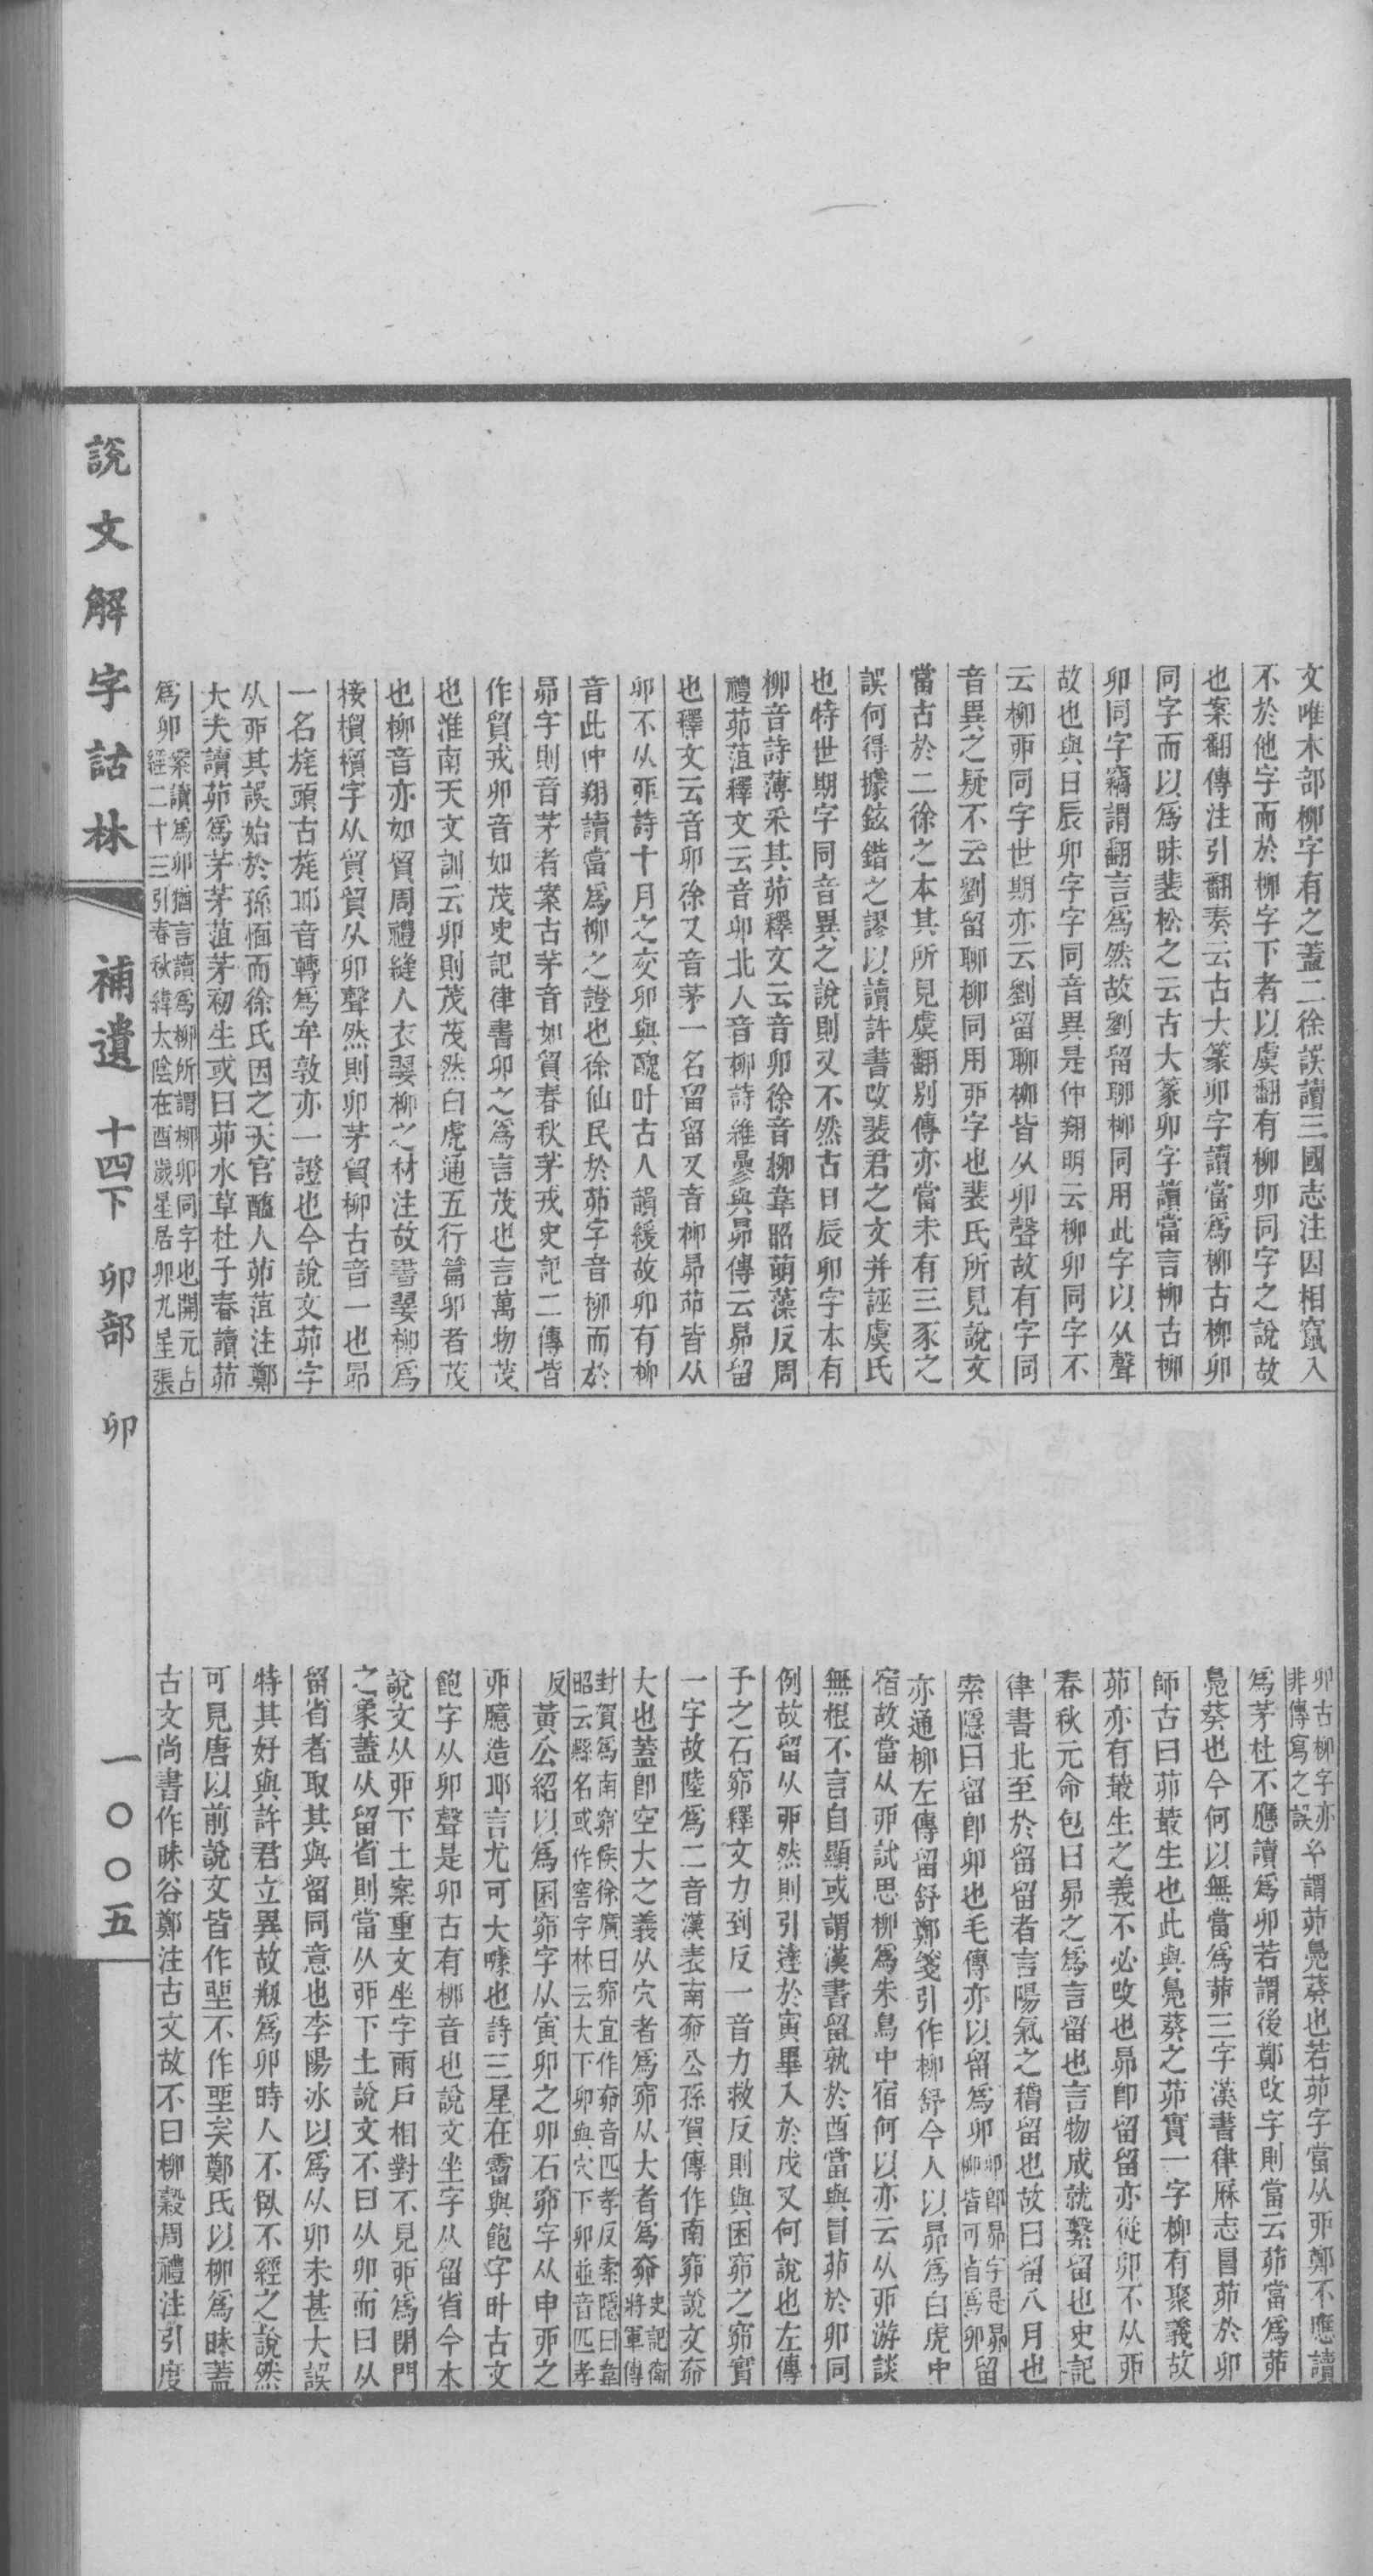 文唯木部柳字有之蓋二徐誤讀三國志注因相竄入
不於他字而於柳字下者以虞翻有柳卯同字之說故
也案翻傳注引翻奏云古大篆卯字讀當爲柳古柳卯
同字而以爲昧裴松之云古大篆卯字讀當言柳古柳
卯同字竊謂翻言爲然故劉留聊柳同用此字以从聲
故也與日辰卯字字同音異是仲翔明云柳卯同字不
云柳丣同字世期亦云劉留聊柳皆从卯聲故有字同
音異之疑不云劉留聊柳同用丣字也裴氏所見說文
當古於二徐之本其所見虞翻別傳亦當未有三豕之
誤何得據鉉錯之謬以讀許書改裴君之文并誣虞氏
也特世期字同音異之說則又不然古日辰卯字本有
柳音詩薄采其茆釋文云音卯徐音柳韋昭萌藻反周
禮茆菹釋文云音卯北人音柳詩維曑與昴傳云昴留
也釋文云音卯徐又音茅一名留留又音柳昴茆皆从
卯不从丣詩十月之交卯與醜叶古人韻緩故卯有柳
音此仲翔讀當爲柳之證也徐仙民於茆字音柳而於
昴字則音茅者案古茅音如貿春秋茅戎史記二傳皆
作貿戎卯音如茂史記律書卯之爲言茂也言萬物茂
也淮南天文訓云卯則茂茂然白虎通五行篇卯者茂
也柳音亦如貿周禮縫人衣翣柳之材注故書翣柳爲
接檟檟字从貿貿从卯聲然則卯茅貿柳古音一也昴
一名旄頭古旄耶音轉爲牟敦亦一證也今說文茆字
从丣其誤始於孫愐而徐氏因之天官醢人茆菹注鄭
大夫讀茆爲茅茅菹茅初生或曰茆水草杜子春讀茆
爲卯案讀爲卯猶言讀爲柳所謂柳卯同字也開元占
經二十三引春秋緯太陰在酉歲星居卯九星張
卯古柳字亦
非傳寫之誤㒳謂茆鳧葵也若茆字當从丣鄭不應讀
爲茅杜不應讀爲卯若謂後鄭改字則當云茆當爲茆
鳧葵也今何以無當爲茆三字漢書律厤志冒茆於卯
師古曰茆叢生也此與鳧葵之茆實一字柳有聚義故
茆亦有叢生之義不必改也昴卽留留亦從卯不从丣
春秋元命包曰昴之爲言留也言物成就繫留也史記
律書北至於留留者言陽氣之稽留也故曰留八月也
索隱曰留卽卯也毛傳亦以留爲卯卯卽昴字是昴留
柳皆可省爲卯
亦通柳左傳留舒鄭箋引作柳舒今人以昴爲白虎中
宿故當从丣試思柳爲朱鳥中宿何以亦云从丣游談
無根不言自顯或謂漢書留孰於酉當與冒茆於卯同
例故留从丣然則引達於寅畢入於戌又何說也左傳
予之石窌釋文力到反一音力救反則與囷窌之窌實
一字故陸爲二音漢表南奅公孫賀傳作南窌說文奅
大也蓋卽空大之義从穴者爲窌从大者爲奅史記衞
將軍傳
封賀爲南窌侯徐廣曰窌宜作奅音匹孝反索隱曰韋
昭云縣名或作窖字林云大下卯與穴下卯並音匹孝
反黃公紹以爲囷窌字从寅卯之卯石窌字从申丣之
丣臆造耶言尤可大噱也詩三星在罶與飽字叶古文
飽字从卯聲是卯古有柳音也說文坐字从留省今本
說文从丣下土案重文坐字兩戶相對不見丣爲閉門
之象蓋从留省則當从丣下土說文不曰从卯而曰从
留省者取其與留同意也李陽冰以爲从卯未甚大誤
特其好與許君立異故瓶爲卯時人不俶不經之說然
可見唐以前說文皆作聖不作堊矣鄭氏以柳爲昧蓋
古文尚書作昧谷鄭注古文故不曰柳穀周禮注引度
說文解字詁林
補遺 十四下 卯部 卯
一〇〇五